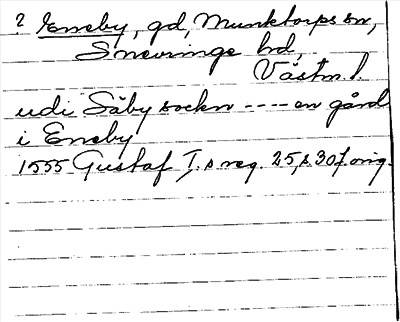 ? Eneby, gd, Munktorps sn,
Snevringe hd,
Västm. l.
udi Säby sockn ---- en gård
i Eneby
1555 Gustaf I.s reg. 25, s 307. orig.